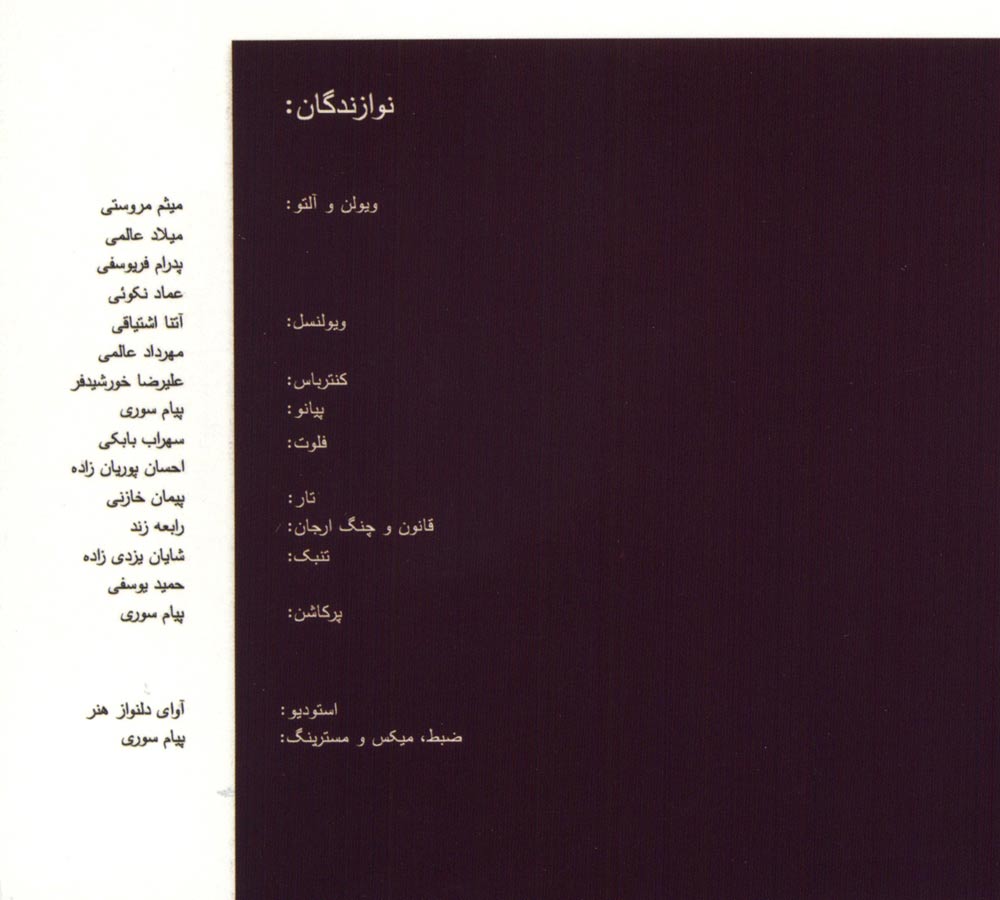 نوازندگان:
ویولن و آلتو: میثم مروستی
میلاد عالمی
پدرام فریوسفی
عماد نکوئی
ویولنسل: آتنا اشتیاقی
مهرداد عالمی
کنترباس: علیرضا خورشیدفر
پیانو: پیام سوری
فلوت: سهراب بابکی
احسان پوریان زاده
تار: پیمان خازنی
قانون و چنگ ارجان: رابعه زند
تنبک: شایان یزدی زاده
حمید یوسفی
پرکاشن: پیام سوری
استودیو: آوای دلنواز هنر
ضبط، میکس و مسترینگ: پیام سوری